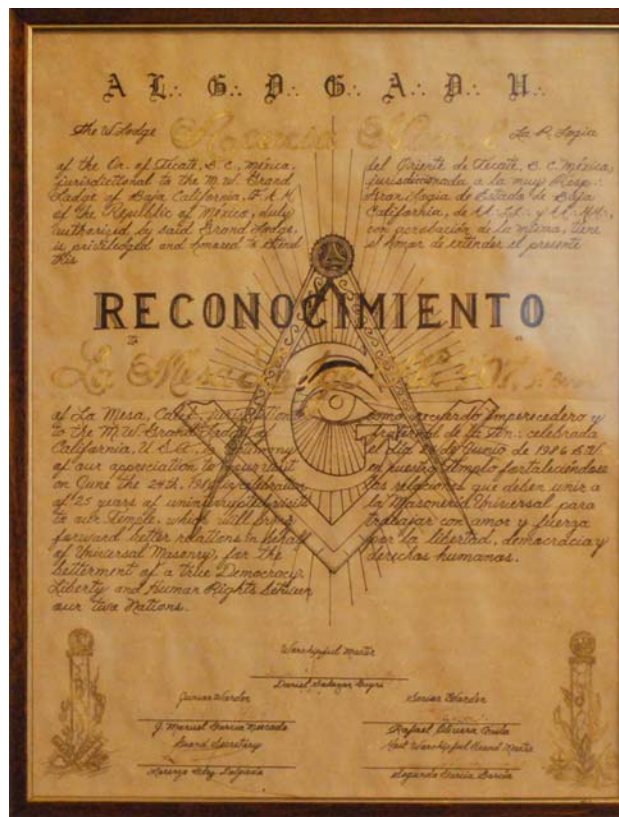 A L∴ G∴ D∴ G∴ A∴ D∴ U∴
The W. Lodge
La R. Logia
of the Or. of Tecate, B. C., México,
jurisdictional to the M. W. Grand
Lodge of Baja California, F. & A. M.
of the Republic of México, duly
authorized by said Grand Lodge,
is priviledged and honored to extend
this
del Oriente de Tecate, B. C. México,
jurisdiccionada a la muy Resp∴
Gran Logia de Estado de Baja
California, de
con aprobación de la misma, tiene
el honor de extender el presente
RECONOCIMIENTO
La Mesa
of La Mesa, Calif., jurisdiction
to the M. W. Grand Lodge of
California, U. S. A., in testimony
of our appreciation to your visit
on June the 24th, 1986, in celebration
of 25 years of uninterrupted visits
to our Temple, which will bring
forward better relations in behalf
of Universal Masonry, for the
betterment of a true Democracy,
Liberty and Human Rights between
our two Nations.
como recuerdo imperecedero y
fraternal de la ten∴ celebrada
el día 24 de Junio de 1986 E. V.
en nuestro templo fortaleciéndose
las relaciones que deben unir a
la Masonería Universal para
trabajar con amor y fuerza
por la libertad, democracia y
derechos humanos.
Worshipful Master
Daniel Salazar
Junior Warden
Senior Warden
J. Manuel García
Rafael
Grand Secretary
Most Worshipful Grand Master
Lorenzo Delgado
Segundo García García